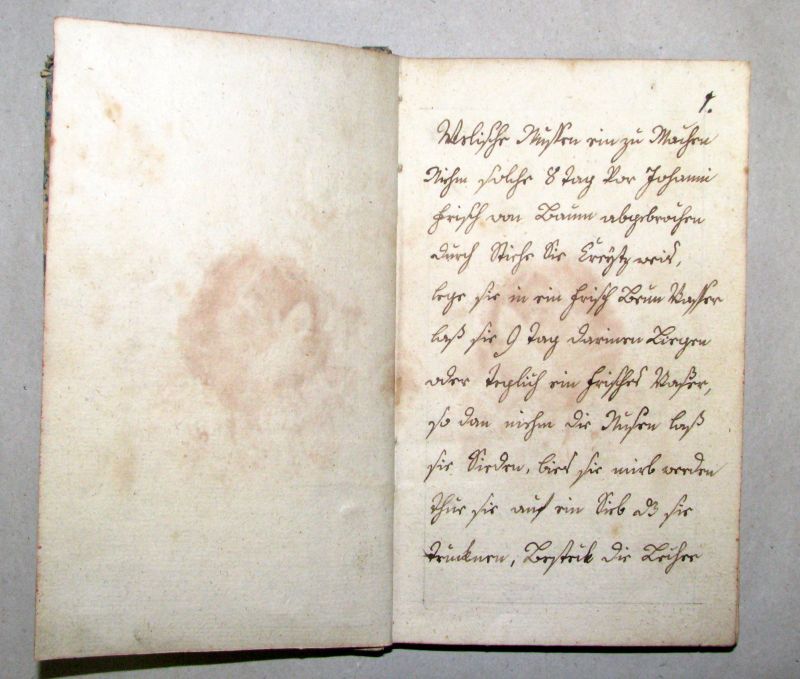 1.
Welische Nussen ein zu Machen
Niehm solche 8 tag Vor Johanni
frisch von Baum abgebrochen
durch Stiche Sie Creÿtz weis,
lege sie in ein frisch Brun Vasser
laß sie 9 tag darinen Liegen
oder teglich ein frisches Vaser,
so dan niehm die Nusen laß
sie Sieden, bies sie mirb werden
thue sie auf ein Sieb dz sie
trucknen, Besteck die Löcher